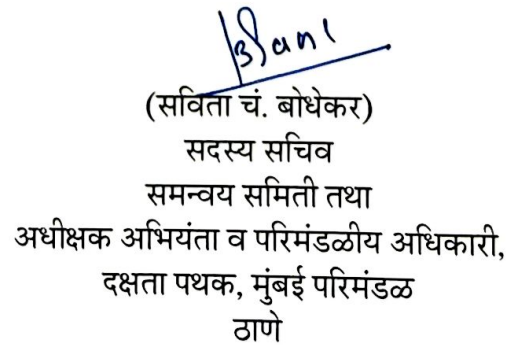 (सविता चं. बोधेकर)
सदस्य सचिव
समन्वय समिती तथा
अधीक्षक अभियंता व परिमंडळीय अधिकारी,
दक्षता पथक, मुंबई परिमंडळ
ठाणे